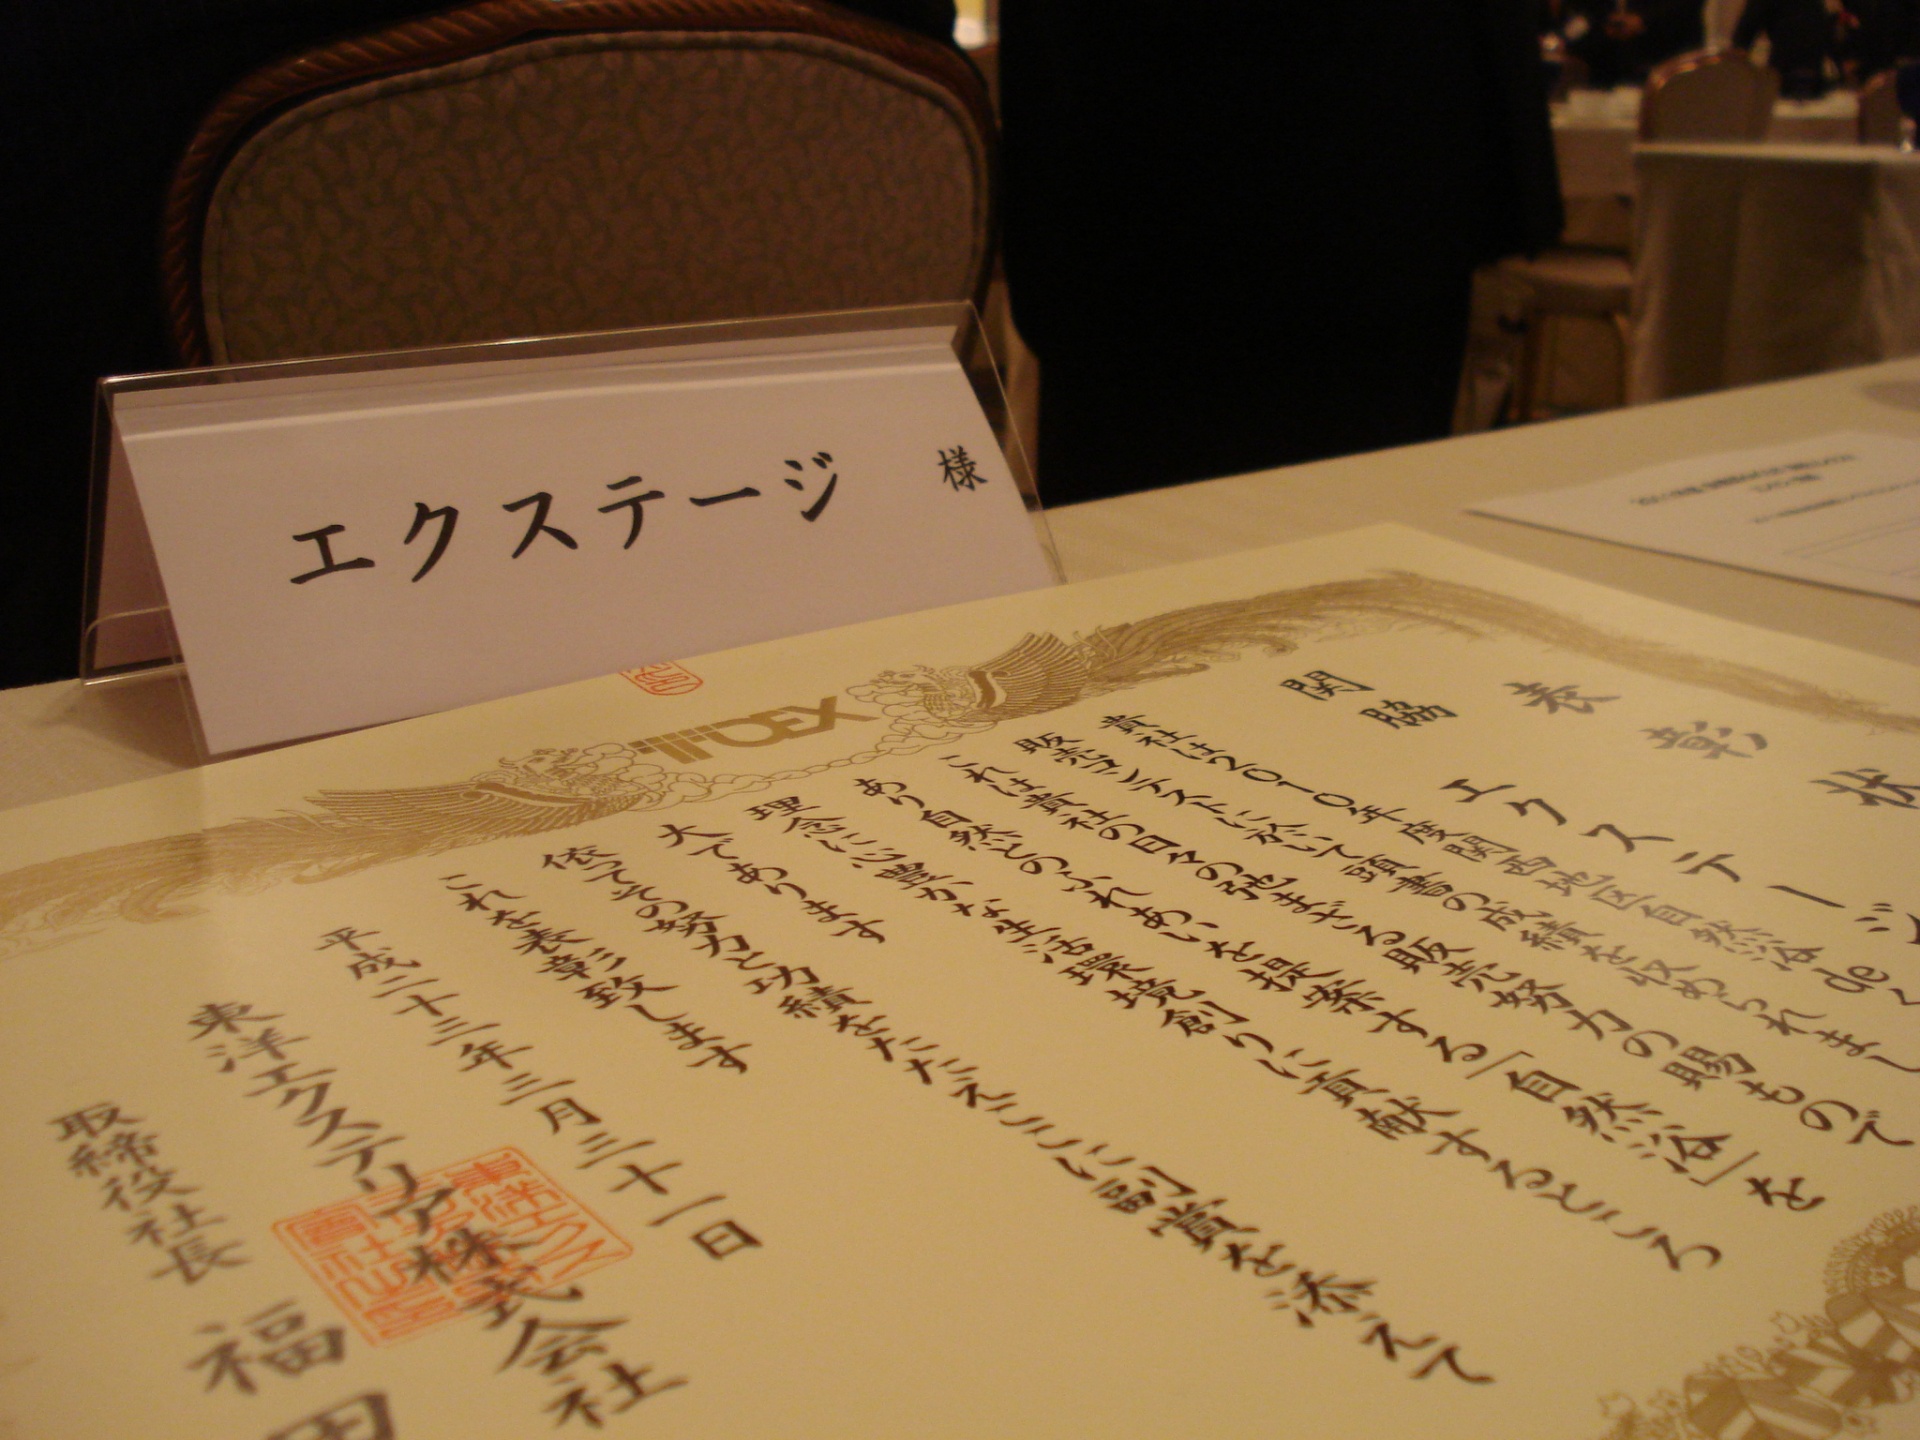 エクステージ 様
表彰状
関脇
エクステージ
貴社は2010年度関西地区自然浴deく
販売コンテストに於いて頭書の成績を収められまし
これは貴社の日々の弛まざる販売努力の賜もので
あり自然とのふれあいを提案する「自然浴」を
理念に心豊かな生活環境創りに貢献するところ
大であります
依てその努力と功績をたたえここに副賞を添えて
これを表彰致します
平成二十三年三月三十一日
東洋エクステリア株式会社
取締役社長 福田